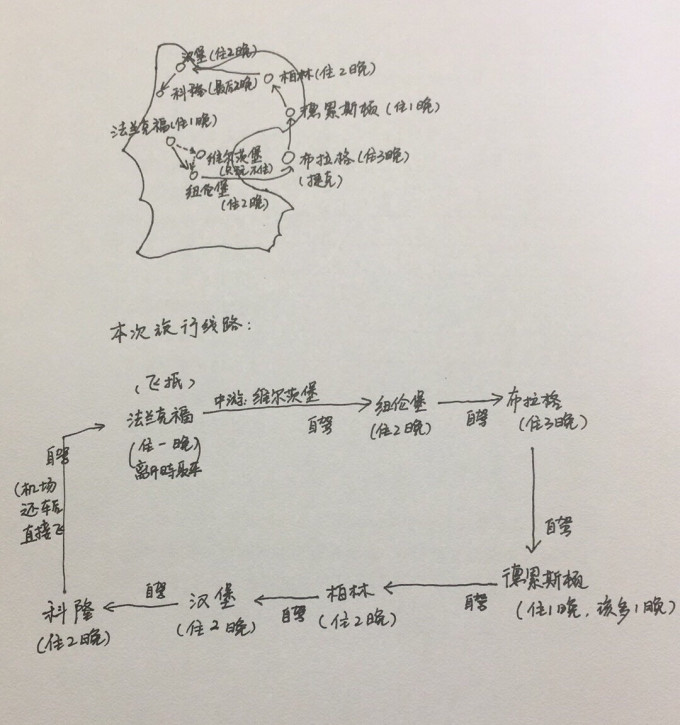 汉堡(住2晚)
柏林(住2晚)
科隆(最后2晚)
德累斯顿(住1晚)
法兰克福(住1晚)
维尔茨堡
(只玩不住)
布拉格(住3晚)
(捷克)
纽伦堡
(住2晚)
本次旅行线路:
(飞抵)
法兰克福
(住一晚)
离开时取车
中游:维尔茨堡
自驾
纽伦堡
(住2晚)
自驾
布拉格
(住3晚)
自驾
德累斯顿
(住1晚,该多1晚)
自驾
柏林
(住2晚)
自驾
汉堡
(住2晚)
自驾
科隆
(住2晚)
自驾
(机场
还车后
直接飞